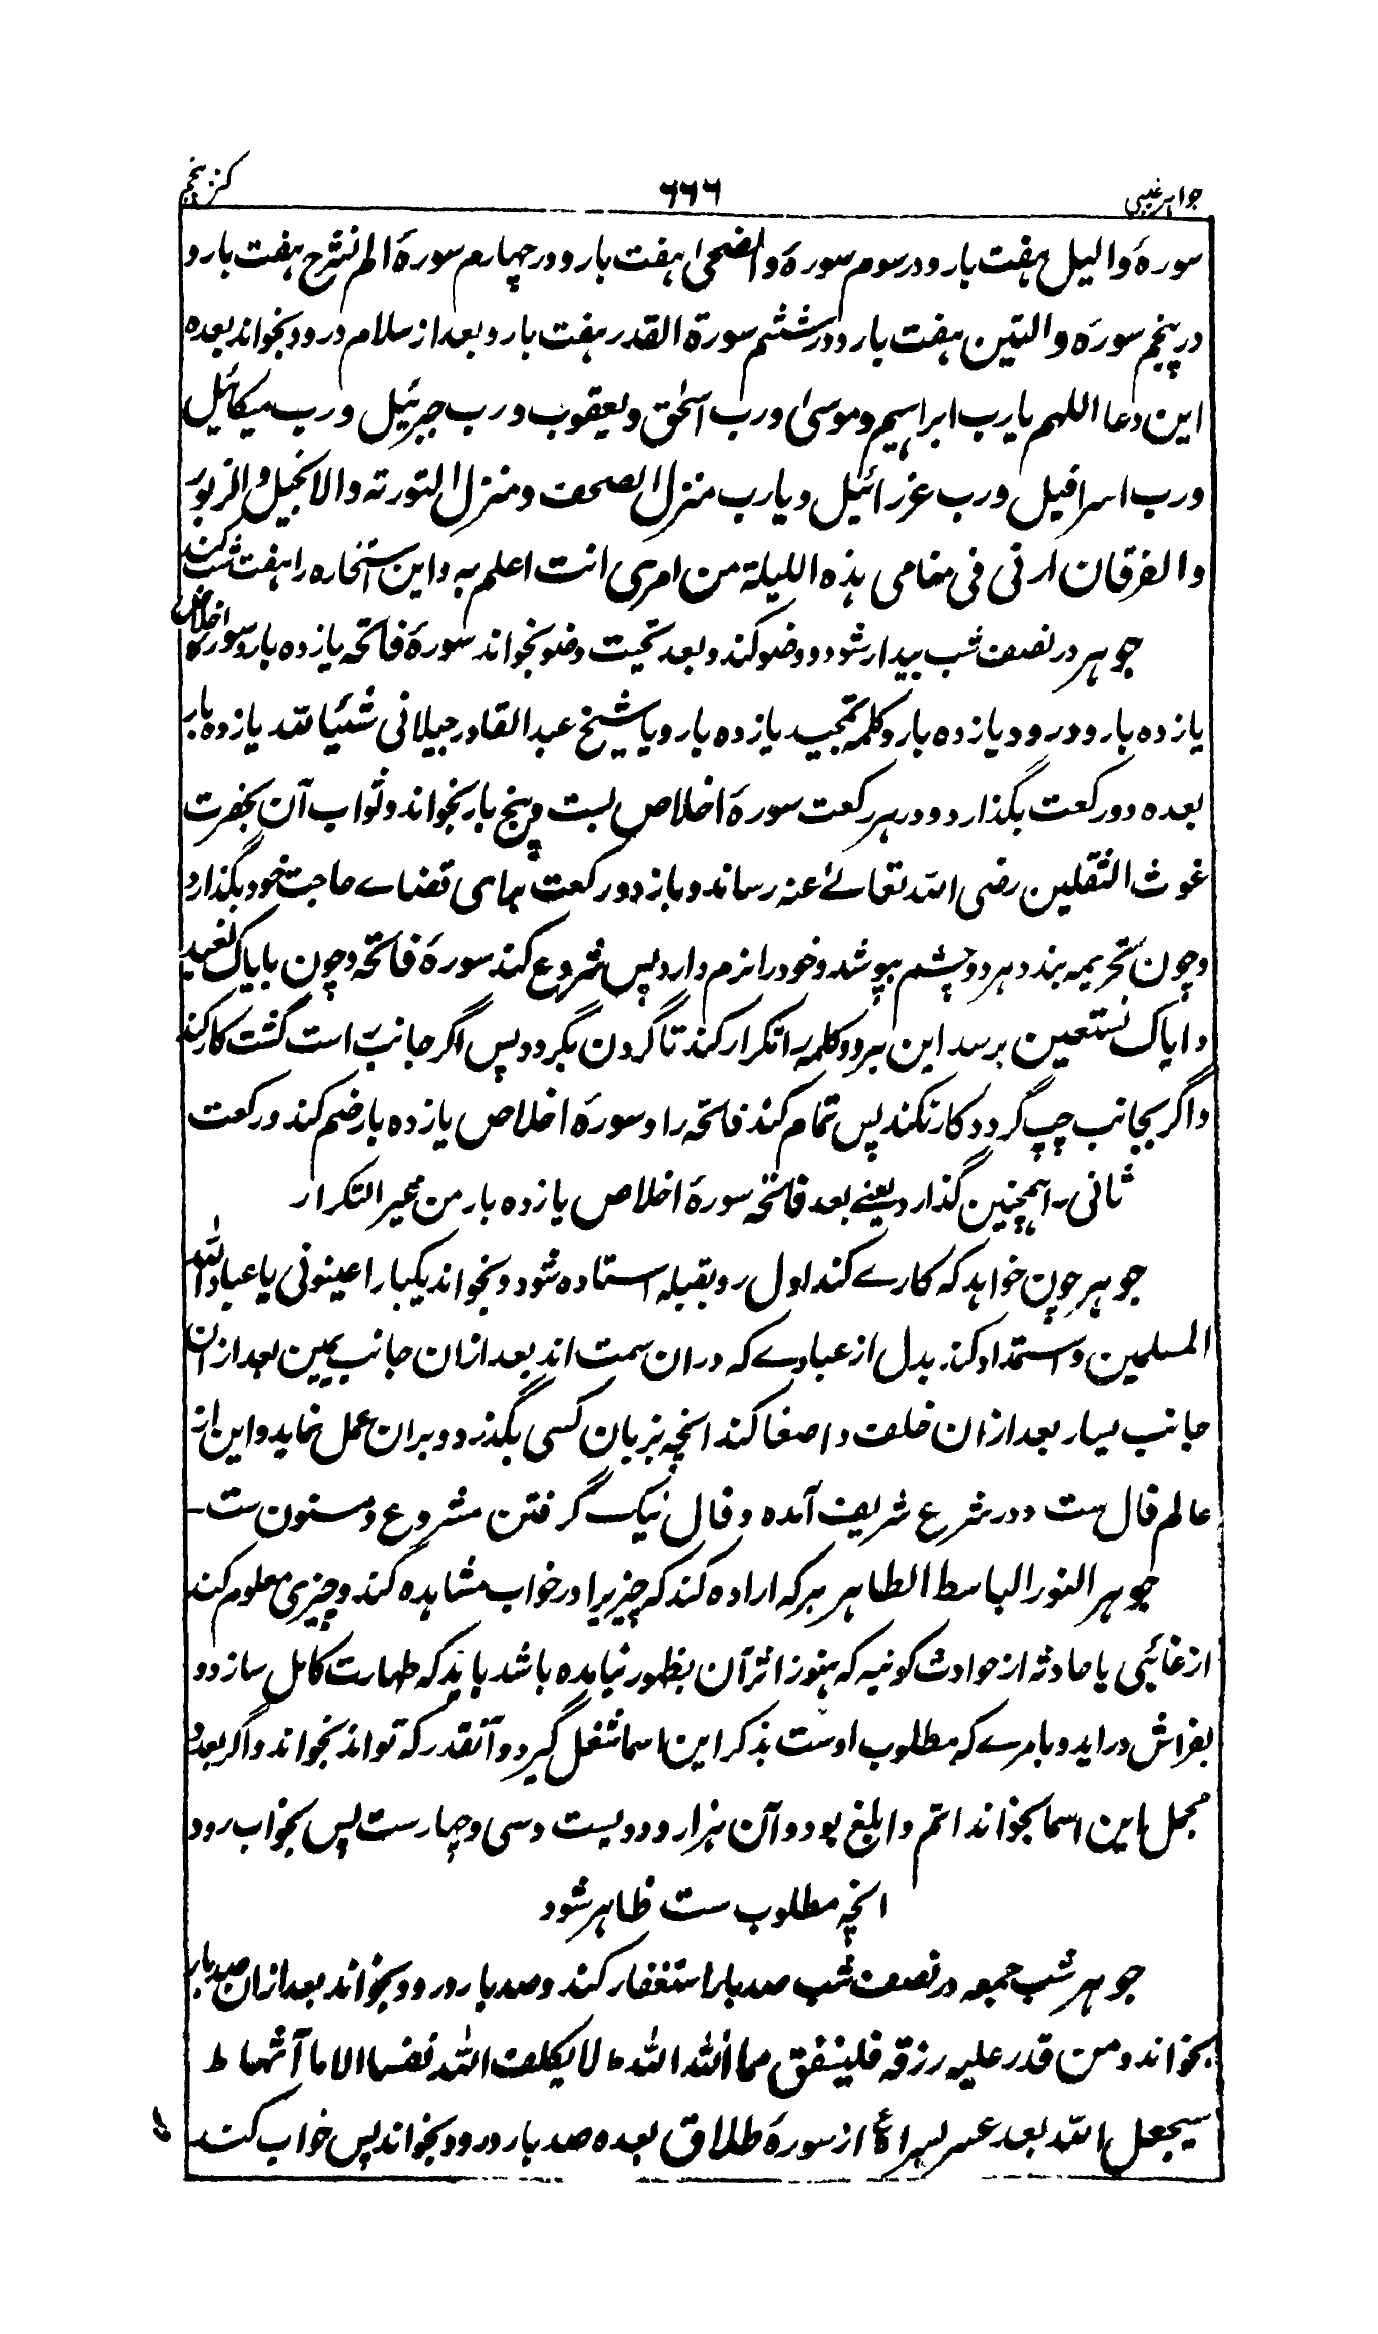 جواہر غیبی
٦٦٦
کنز پنجم
سورۂ والیل ہفت بار و در سوم سورۂ والضحیٰ ہفت بار و در چہارم سورۂ الم نشرح ہفت بار و
در پنجم سورۂ والتین ہفت بار و در ششم سورۃ القدر ہفت بار و بعد از سلام درود بخواند بعدہ
این دعا اللہم یا رب ابراہیم و موسیٰ و رب اسحٰق و یعقوب و رب جبرئیل و رب میکائیل
و رب اسرافیل و رب عزرائیل و یا رب منزل الصحف و منزل التورتہ والانجیل والزبور
والفرقان ارنی فی منامی ہذہ اللیلۃ من امری انت اعلم بہ و این استخارہ را ہفت شب کند
جوہر در نصف شب بیدار شود و وضو کند و بعد تحیت وضو بخواند سورۂ فاتحہ یازدہ بار و سورۂ اخلاص
یازدہ بار و درود یازدہ بار و کلمۂ تمجید یازدہ بار و یا شیخ عبدالقادر جیلانی شئیاً للہ یازدہ بار
بعدہ دو رکعت بگذارد و در ہر رکعت سورۂ اخلاص بست و پنج بار بخواند و ثواب آن بحضرت
غوث الثقلین رضی اللہ تعالےٰ عنہ رساند و باز دو رکعت برای قضاے حاجت خود بگذارد
و چون تحریمہ بندد ہر دو چشم بپوشد و خود را نرم دارد پس شروع کند سورۂ فاتحہ و چون بایاک نعبد
و ایاک نستعین برسد این ہر دو کلمہ را تکرار کند تا گردن بگردد پس اگر جانب راست گشت کار کند
و اگر بجانب چپ گردد کار نکند پس تمام کند فاتحہ را و سورۂ اخلاص یازدہ بار ضم کند و رکعت
ثانی را ہمچنین گذارد یعنے بعد فاتحہ سورۂ اخلاص یازدہ بار من غیر التکرار
جوہر چون خواہد کہ کارے کند اول رو بقبلہ استادہ شود و بخواند یکبار اعینونی یا عباد اللہ
المسلمین و استمداد کند بدل از عبادے کہ در ان سمت اند بعد از ان جانب یمین بعد از ان
جانب یسار بعد از ان خلف و اصغا کند انچہ بزبان کسی بگذرد و بران عمل نماید و این از
عالم فال ست و در شرع شریف آمدہ و فال نیک گرفتن مشروع و مسنون ست
جوہر النور الباسط الظاہر ہر کہ ارادہ کند کہ چیزیرا در خواب مشاہدہ کند و چیزی معلوم کند
از غائبی یا حادثہ از حوادث کونیہ کہ ہنوز اثر آن بظہور نیامدہ باشد باید کہ طہارت کامل سازد و
بفراش در اید و بامرے کہ مطلوب اوست بذکر این اسما شغل گیرد و آنقدر کہ تواند بخواند و اگر بعدد
مجمل این اسما بخواند اتم و ابلغ بود و آن ہزار و دویست و سی و چہارست پس بخواب رود
انچہ مطلوب ست ظاہر شود
جوہر شب جمعہ در نصف شب صد بار استغفار کند و صد بار درود بخواند بعد از ان صد بار
بخواند و من قدر علیہ رزقہ فلینفق مما اٰتٰہ اللہ ط لا یکلف اللہ نفسا الا ما آتہا ط
سیجعل اللہ بعد عسر یسرا از سورۂ طلاق بعدہ صد بار درود بخواند پس خواب کند